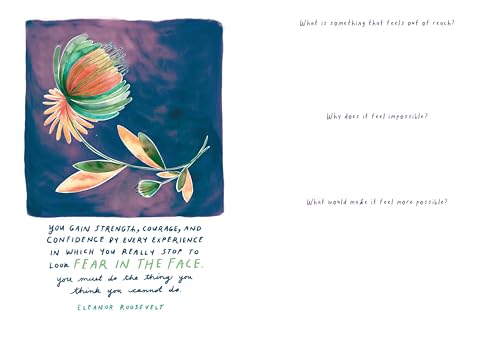 YOU GAIN STRENGTH, COURAGE, AND
CONFIDENCE BY EVERY EXPERIENCE
IN WHICH YOU REALLY STOP TO
LOOK FEAR IN THE FACE.
you must do the thing you
think you cannot do.
ELEANOR ROOSEVELT
What is something that feels out of reach?
Why does it feel impossible?
What would make it feel more possible?